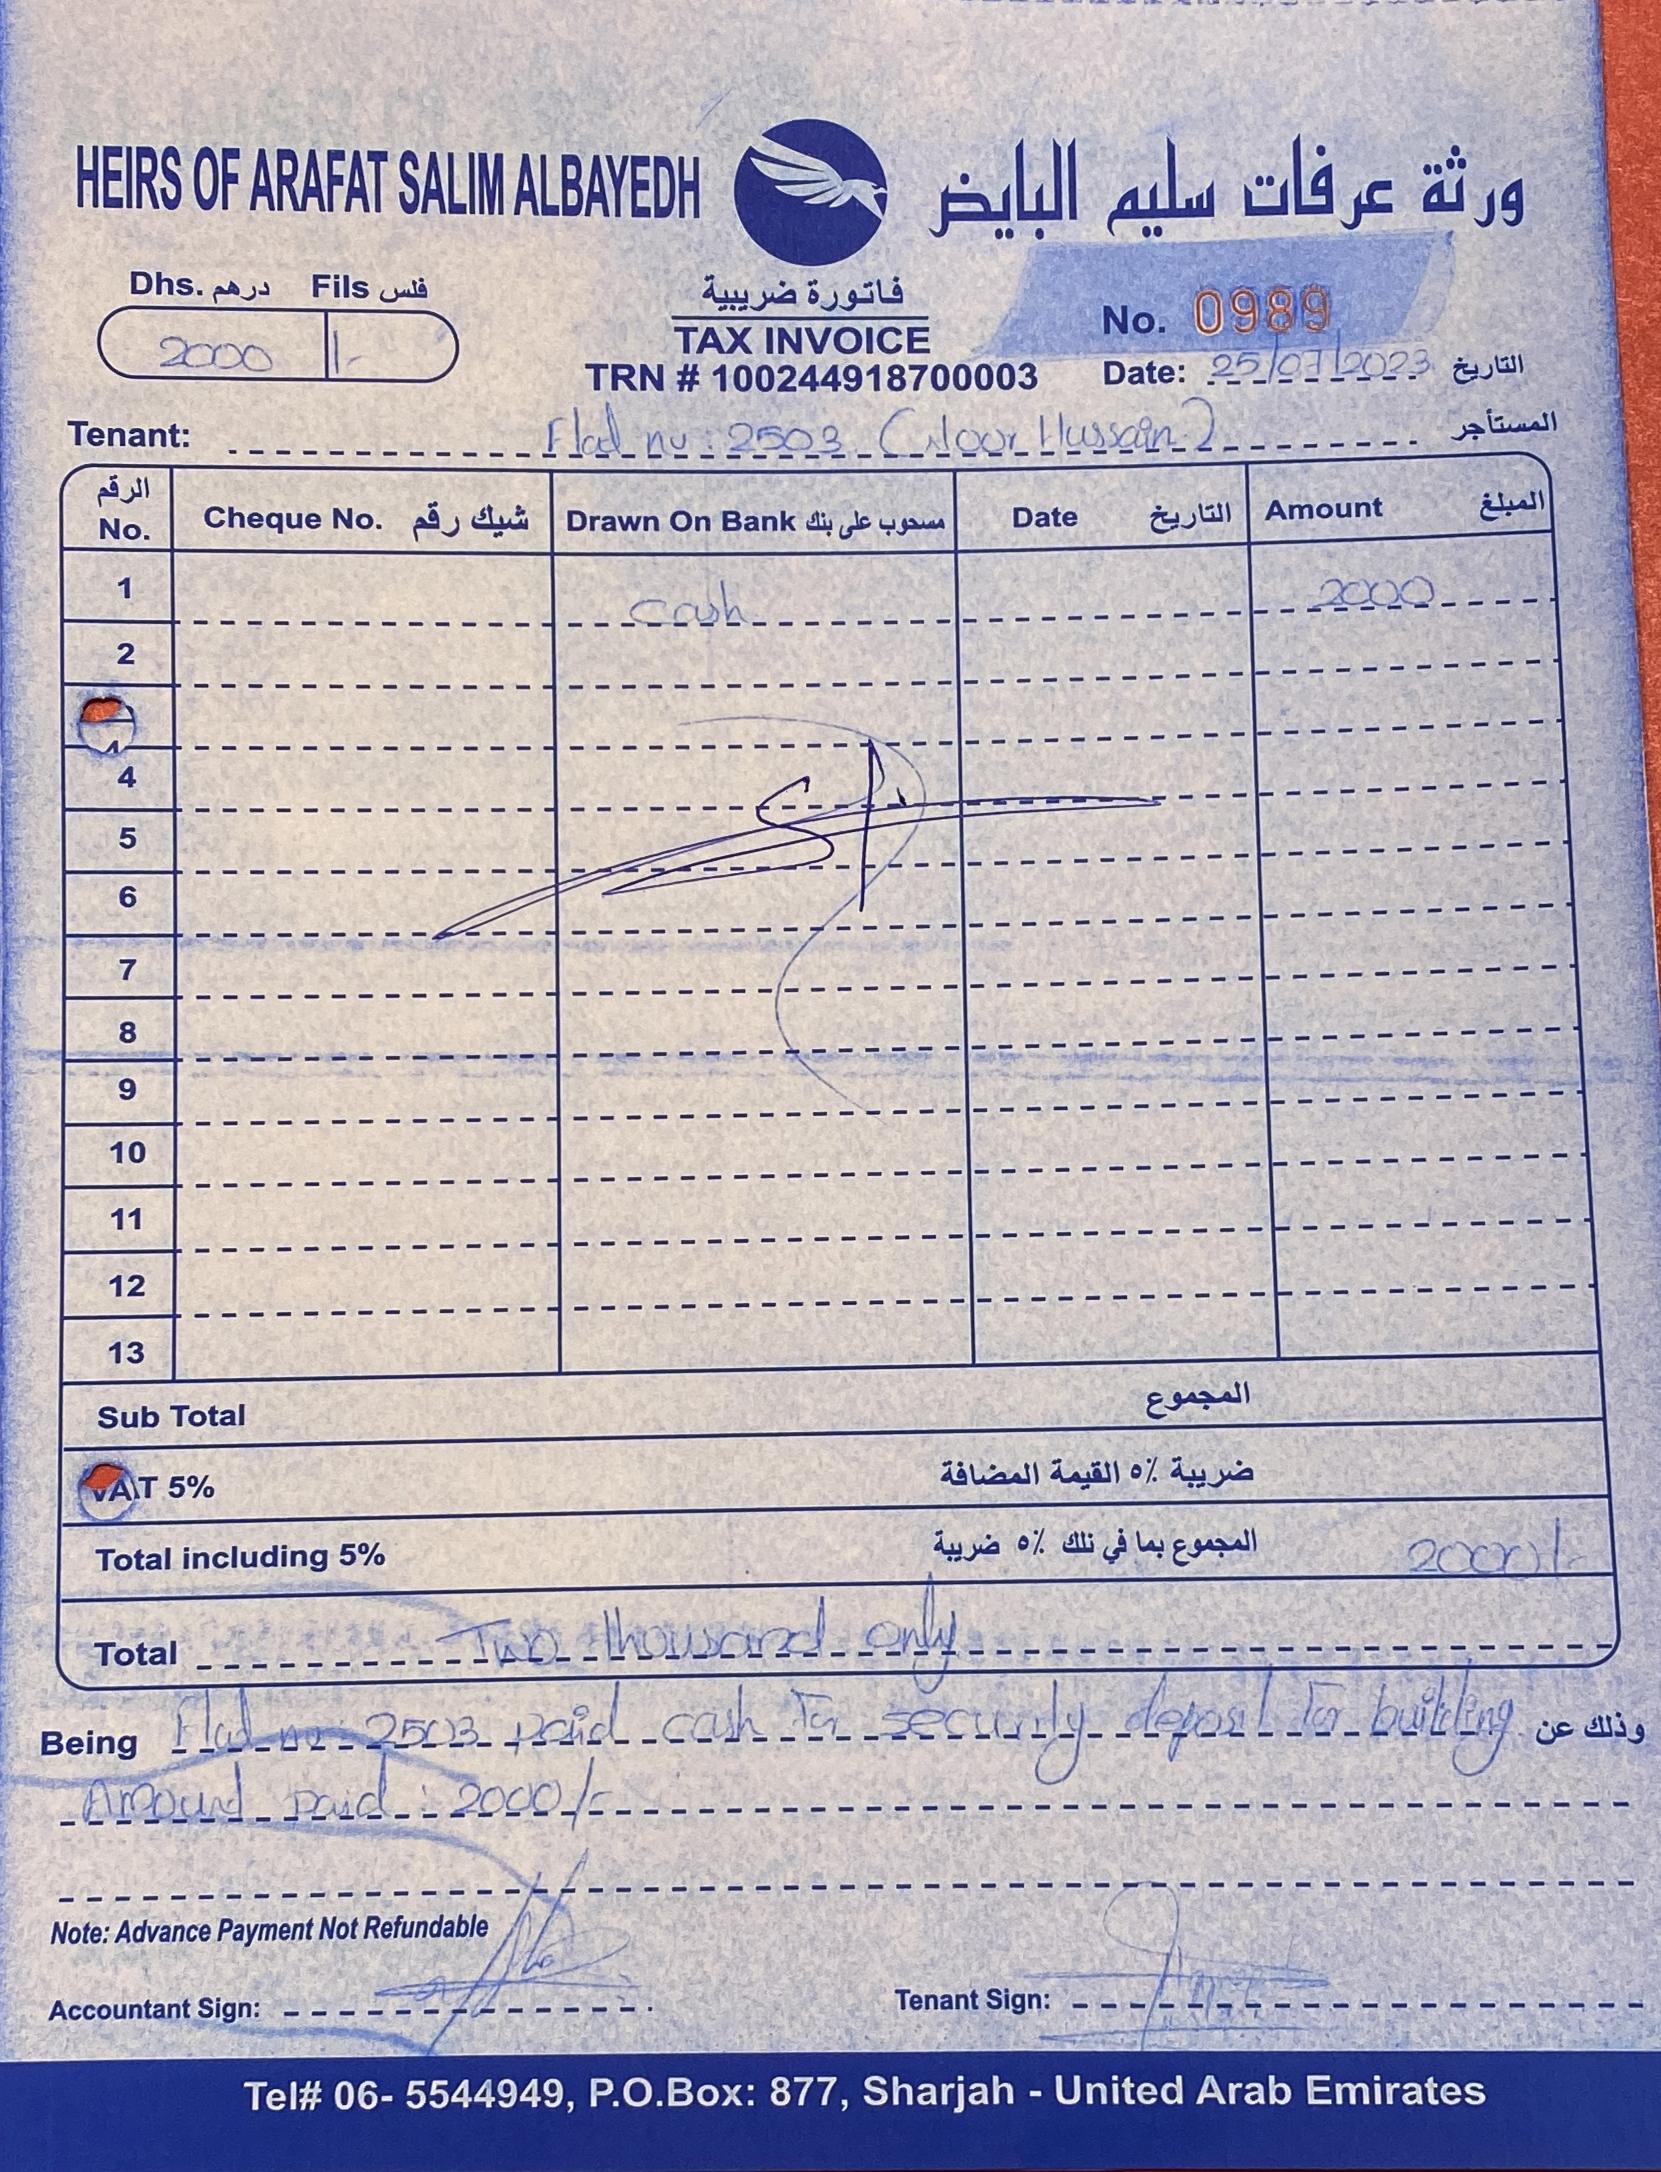 HEIRS OF ARAFAT SALIM ALBAYEDH
ورثة عرفات سليم البايض
Dhs. درهم Fils فلس
2000 /-
فاتورة ضريبية
TAX INVOICE
TRN # 100244918700003
No. 0989
Date: 25/07/2023 التاريخ
Tenant: Flad no: 2503 (Noor Hussain) المستأجر
الرقم No. Cheque No. شيك رقم Drawn On Bank مسحوب على بنك Date التاريخ Amount المبلغ
1 cash 2000
2
4
5
6
7
8
9
10
11
12
13
Sub Total المجموع
VAT 5% ضريبة ٥٪ القيمة المضافة
Total including 5% المجموع بما في تلك ٥٪ ضريبة 2000/-
Total Two thousand only
Being Flad no: 2503 paid cash for security deposit for building وذلك عن
Amound paid : 2000/-
Note: Advance Payment Not Refundable
Accountant Sign:
Tenant Sign:
Tel# 06- 5544949, P.O.Box: 877, Sharjah - United Arab Emirates